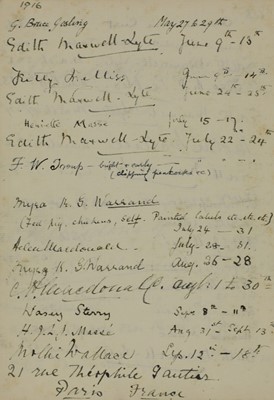 1916
G. Bruce Gosling May 27 to 29th
Edith Maxwell-Lyte June 9th - 13th
June 9th - 14th
Edith Maxwell-Lyte June 24th - 25th
Henriette Massé July 15 - 17
Edith Maxwell-Lyte July 22 - 24th
F. W. Troup - bright & early " - "
Myra K. G. Warrand
(Fed pig, chickens, self. Painted labels etc. etc. etc)
July 24 - 31
Helen Macdonald July 28 - 31
Myra K. G. Warrand Aug. 26 - 28
Aug 1 to 30th
Sept 8th - 11th
H. J. L. J. Massé Aug 21st - Sept 13th
Mollie Wallace Sep. 12th - 18th
21 rue Théophile Gautier
Paris France